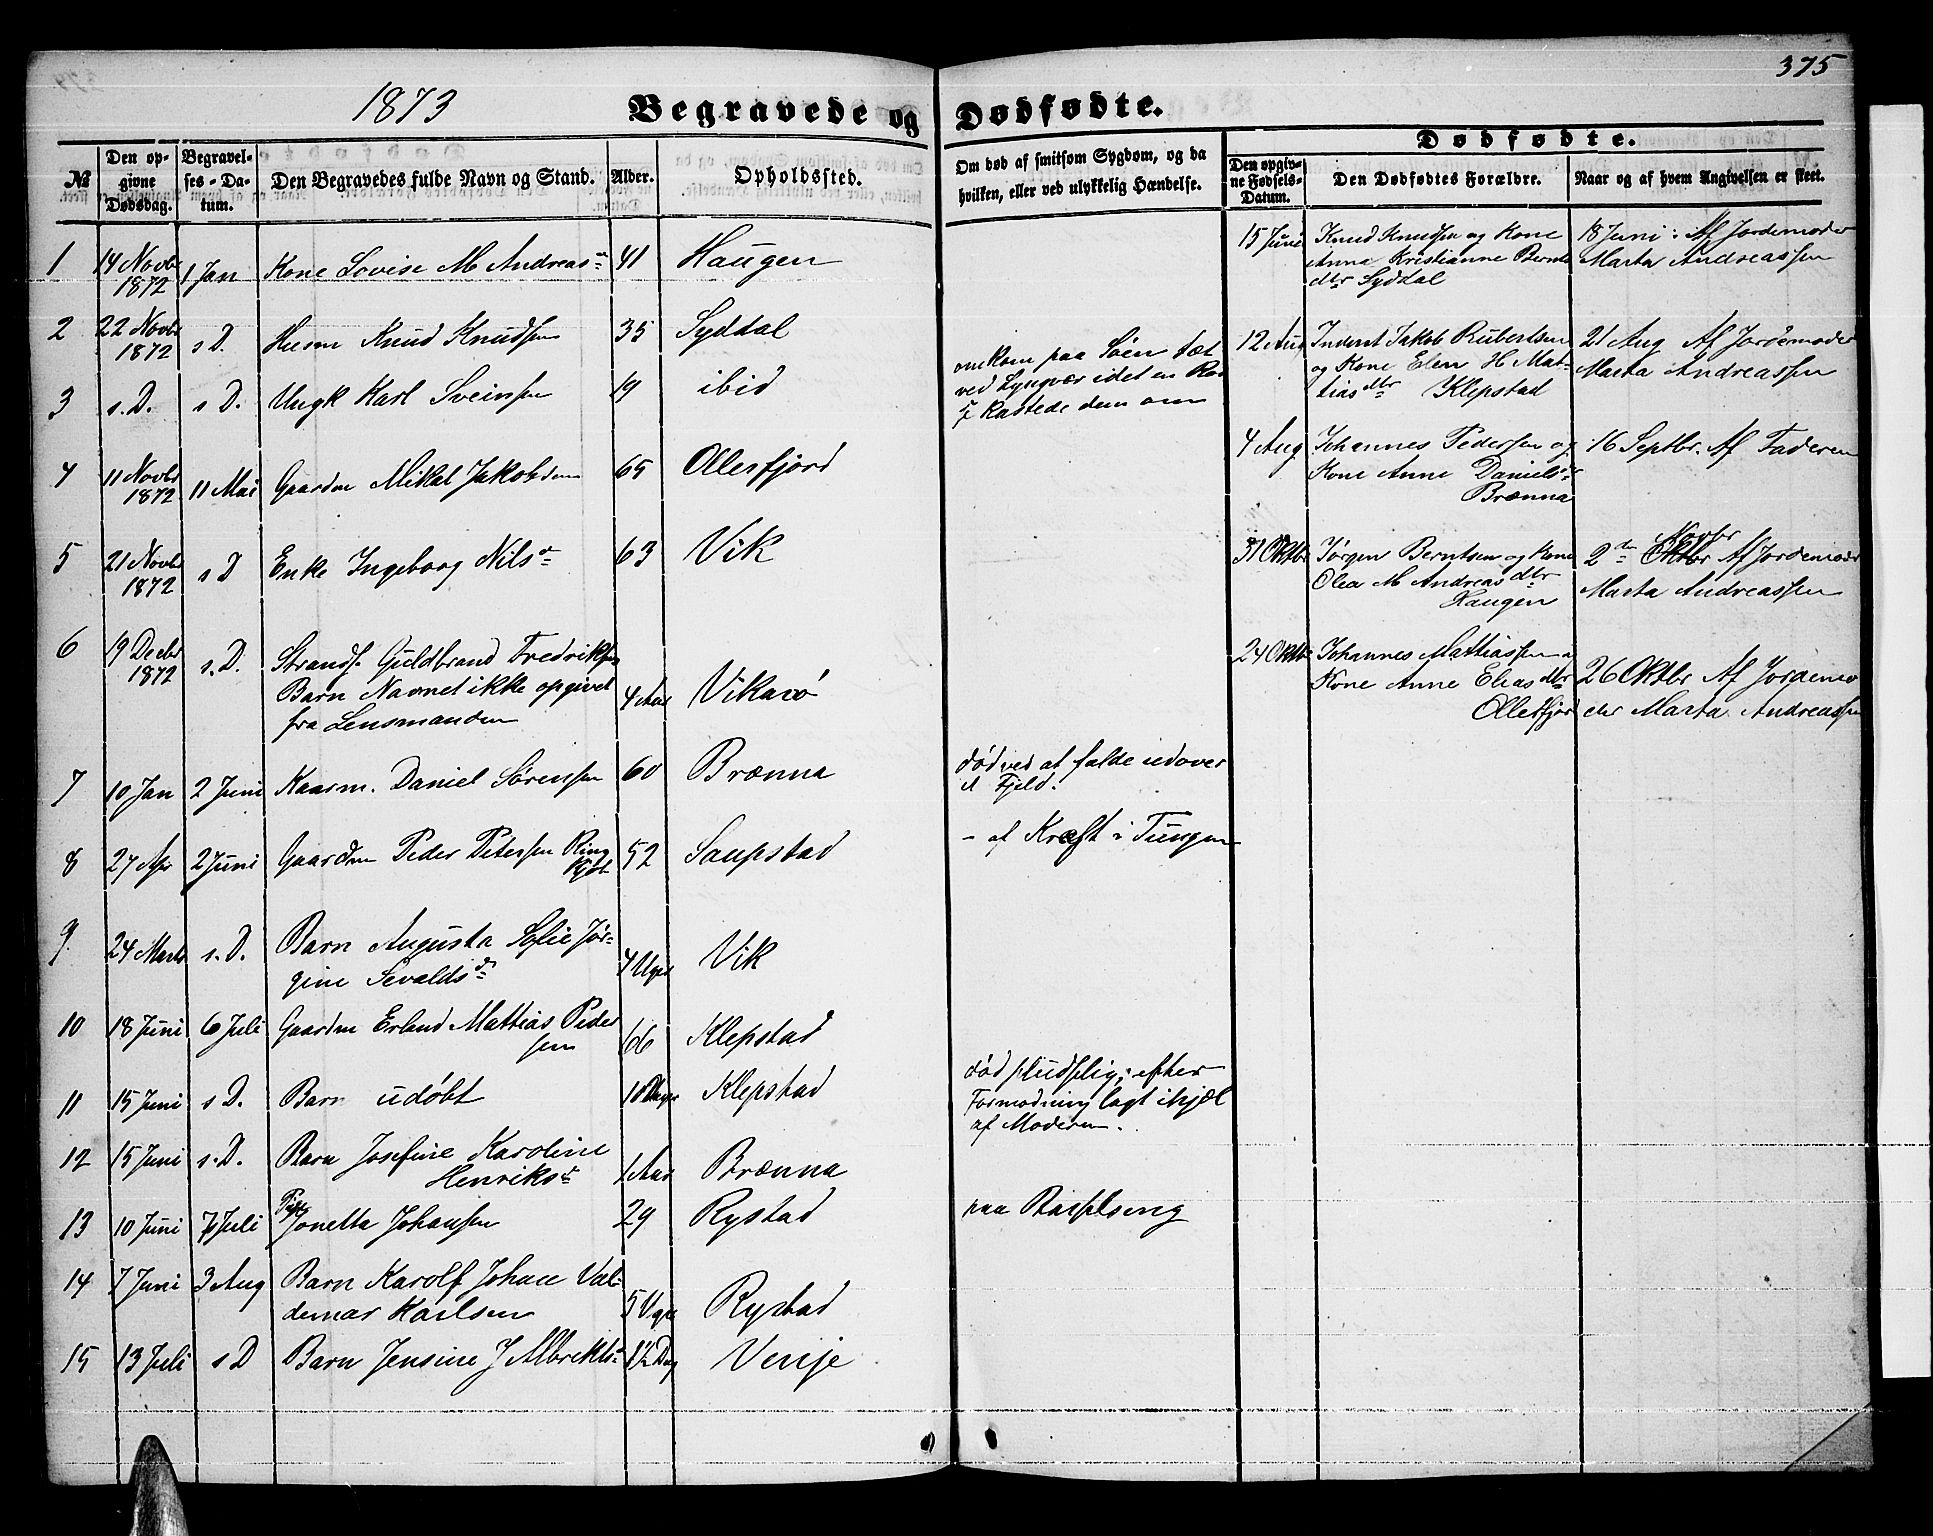 375
1873
Begravede og Dødfødte.
№
Den opgivne Dødsdag.
Begravelses-Datum.
Den Begravedes fulde Navn og Stand.
Alder.
Opholdssted.
Om død af smitsom Sygdom, og da hvilken, eller ved ulykkelig Hændelse.
Dødfødte.
Den opgivne Fødsels-Datum.
Den Dødfødtes Forældre.
Naar og af hvem Angivelsen er skeet.
1 14 Novbr 1872 1 Jan Kone Lovise M Andreas 41 Haugen
2 22 Novbr 1872 s D. Husm Knud Knudsen 35 Sydtal
omkom paa Søen tæt
ved Lyngvær idet en
kastede dem om
3 s. D. s D. Ungk Karl Sveinsen 19 ibid
4 11 Novbr 1872 11 Mai Gaardm Mikal Jakobsen 65 Ollesfjord
5 21 Novbr 1872 s D Enke Ingeborg Nils 63 Vik
6 19 Decbr 1872 s. D. Strands. Guldbrand Fredriksens
Barn Navnet ikke opgivet 4 Aar Vikarø
fra Lensmanden
7 10 Jan 2 Juni Kaarm. Daniel Sørensen 60 Brænna
død ved at falde udover
et Fjeld.
8 27 Apr 2 Juni Gaardm Peder Petersen Ring 52 Saupstad - af Kræft i Tungen
9 24 Marts s. D. Barn Augusta Sofie Jør-
gine Sevalds 4 Uger Vik
10 18 Juni 6 Juli Gaardm Erland Mattias Peder
sen 66 Klepstad
11 15 Juni s D. Barn udøbt 10 Dage Klepstad
død pludselig; efter
Formodning lagt ihjel
af Moderen.
12 15 Juni s. D. Barn Josefine Karoline
Henriks 1 Aar Brænna
13 10 Juni 7 Juli Pige Jonetta Johansen 29 Rystad paa Barselseng
14 7 Juni 3 Aug Barn Karolf Johan Val-
demar Karlsen 5 Uger Rystad
15 13 Juli s D Barn Jensine J Albrikts Dag Venje
15 Juni Knud Knudsen og Kone
Anne Kristianne Bernt
dtr Sydtal
18 Juni: Af Jordemoder
Marta Andreassen
12 Aug Inderst Jakob Rubertsen
og Kone Elen H Mat-
tias dtr Klepstad
21 Aug Af Jordemoder
Marta Andreassen
4 Aug Johannes Pedersen og
Kone Anne Daniels
Brænna
16 Septbr. Af Faderen
31 Oktbr Jørgen Berntsen og Kone
Olea M Andreas dtr
Haugen
Novbr
2 Oktbr Af Jordemoder
Marta Andreassen
24 Oktbr Johannes Mattiassen
Kone Anne Elias dtr
Ollesfjord
26 Oktbr Af Jordemo
der Marta Andreassen